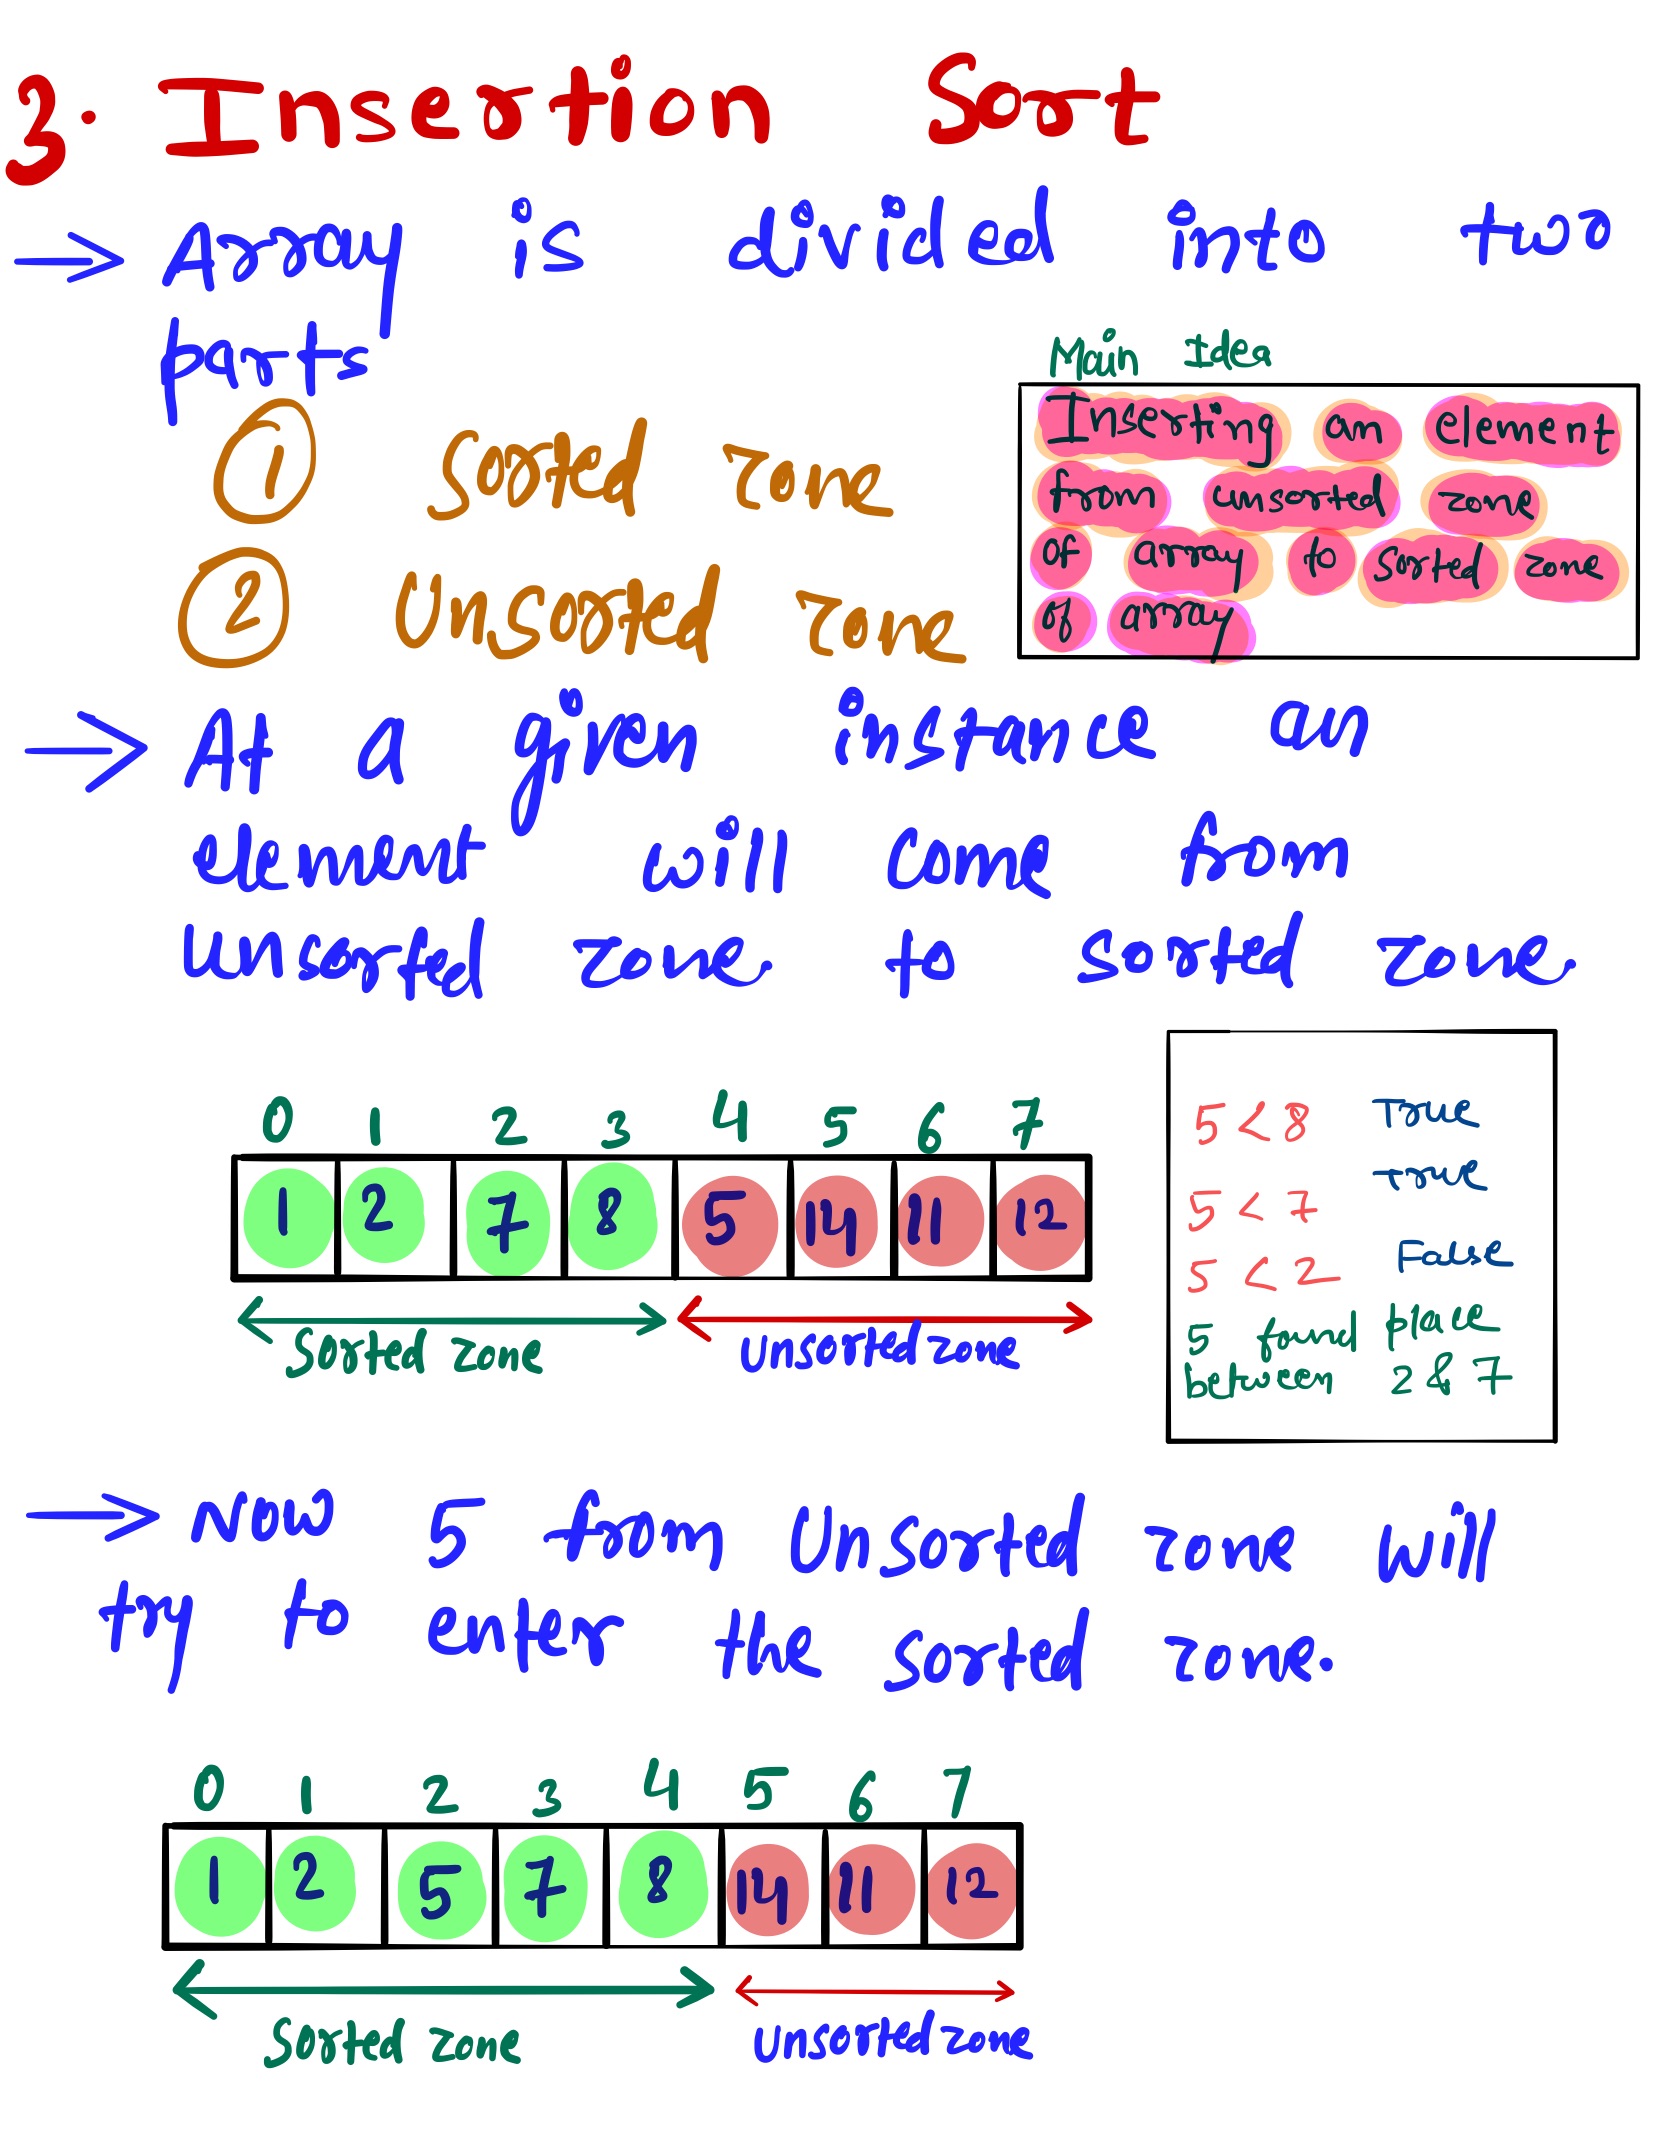 3. Insertion Sort
→ Array is divided into two
parts
① Sorted zone
② Unsorted zone
Main Idea
Inserting an element
from unsorted zone
of array to sorted zone
of array
→ At a given instance an
element will come from
unsorted zone to sorted zone
0 1 2 3 4 5 6 7
1 2 7 8 5 14 11 12
Sorted zone Unsorted zone
5 < 8 True
5 < 7 True
5 < 2 False
5 found place
between 2 & 7
→ Now 5 from Unsorted zone will
try to enter the sorted zone.
0 1 2 3 4 5 6 7
1 2 5 7 8 14 11 12
Sorted zone Unsorted zone